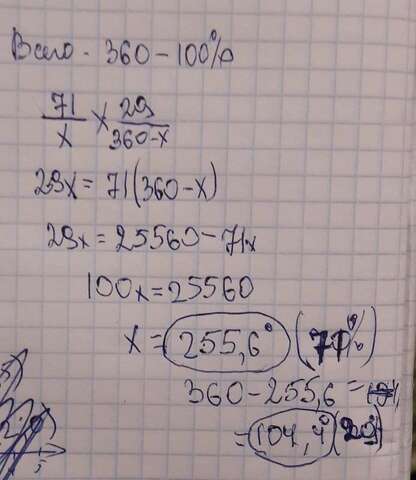 Всего - 360 - 100%
71/x × 29/360-x
29x = 71(360-x)
29x = 25560-71x
100x = 25560
x = 255,6° (71%)
360-255,6 =
= 104,4° (29%)